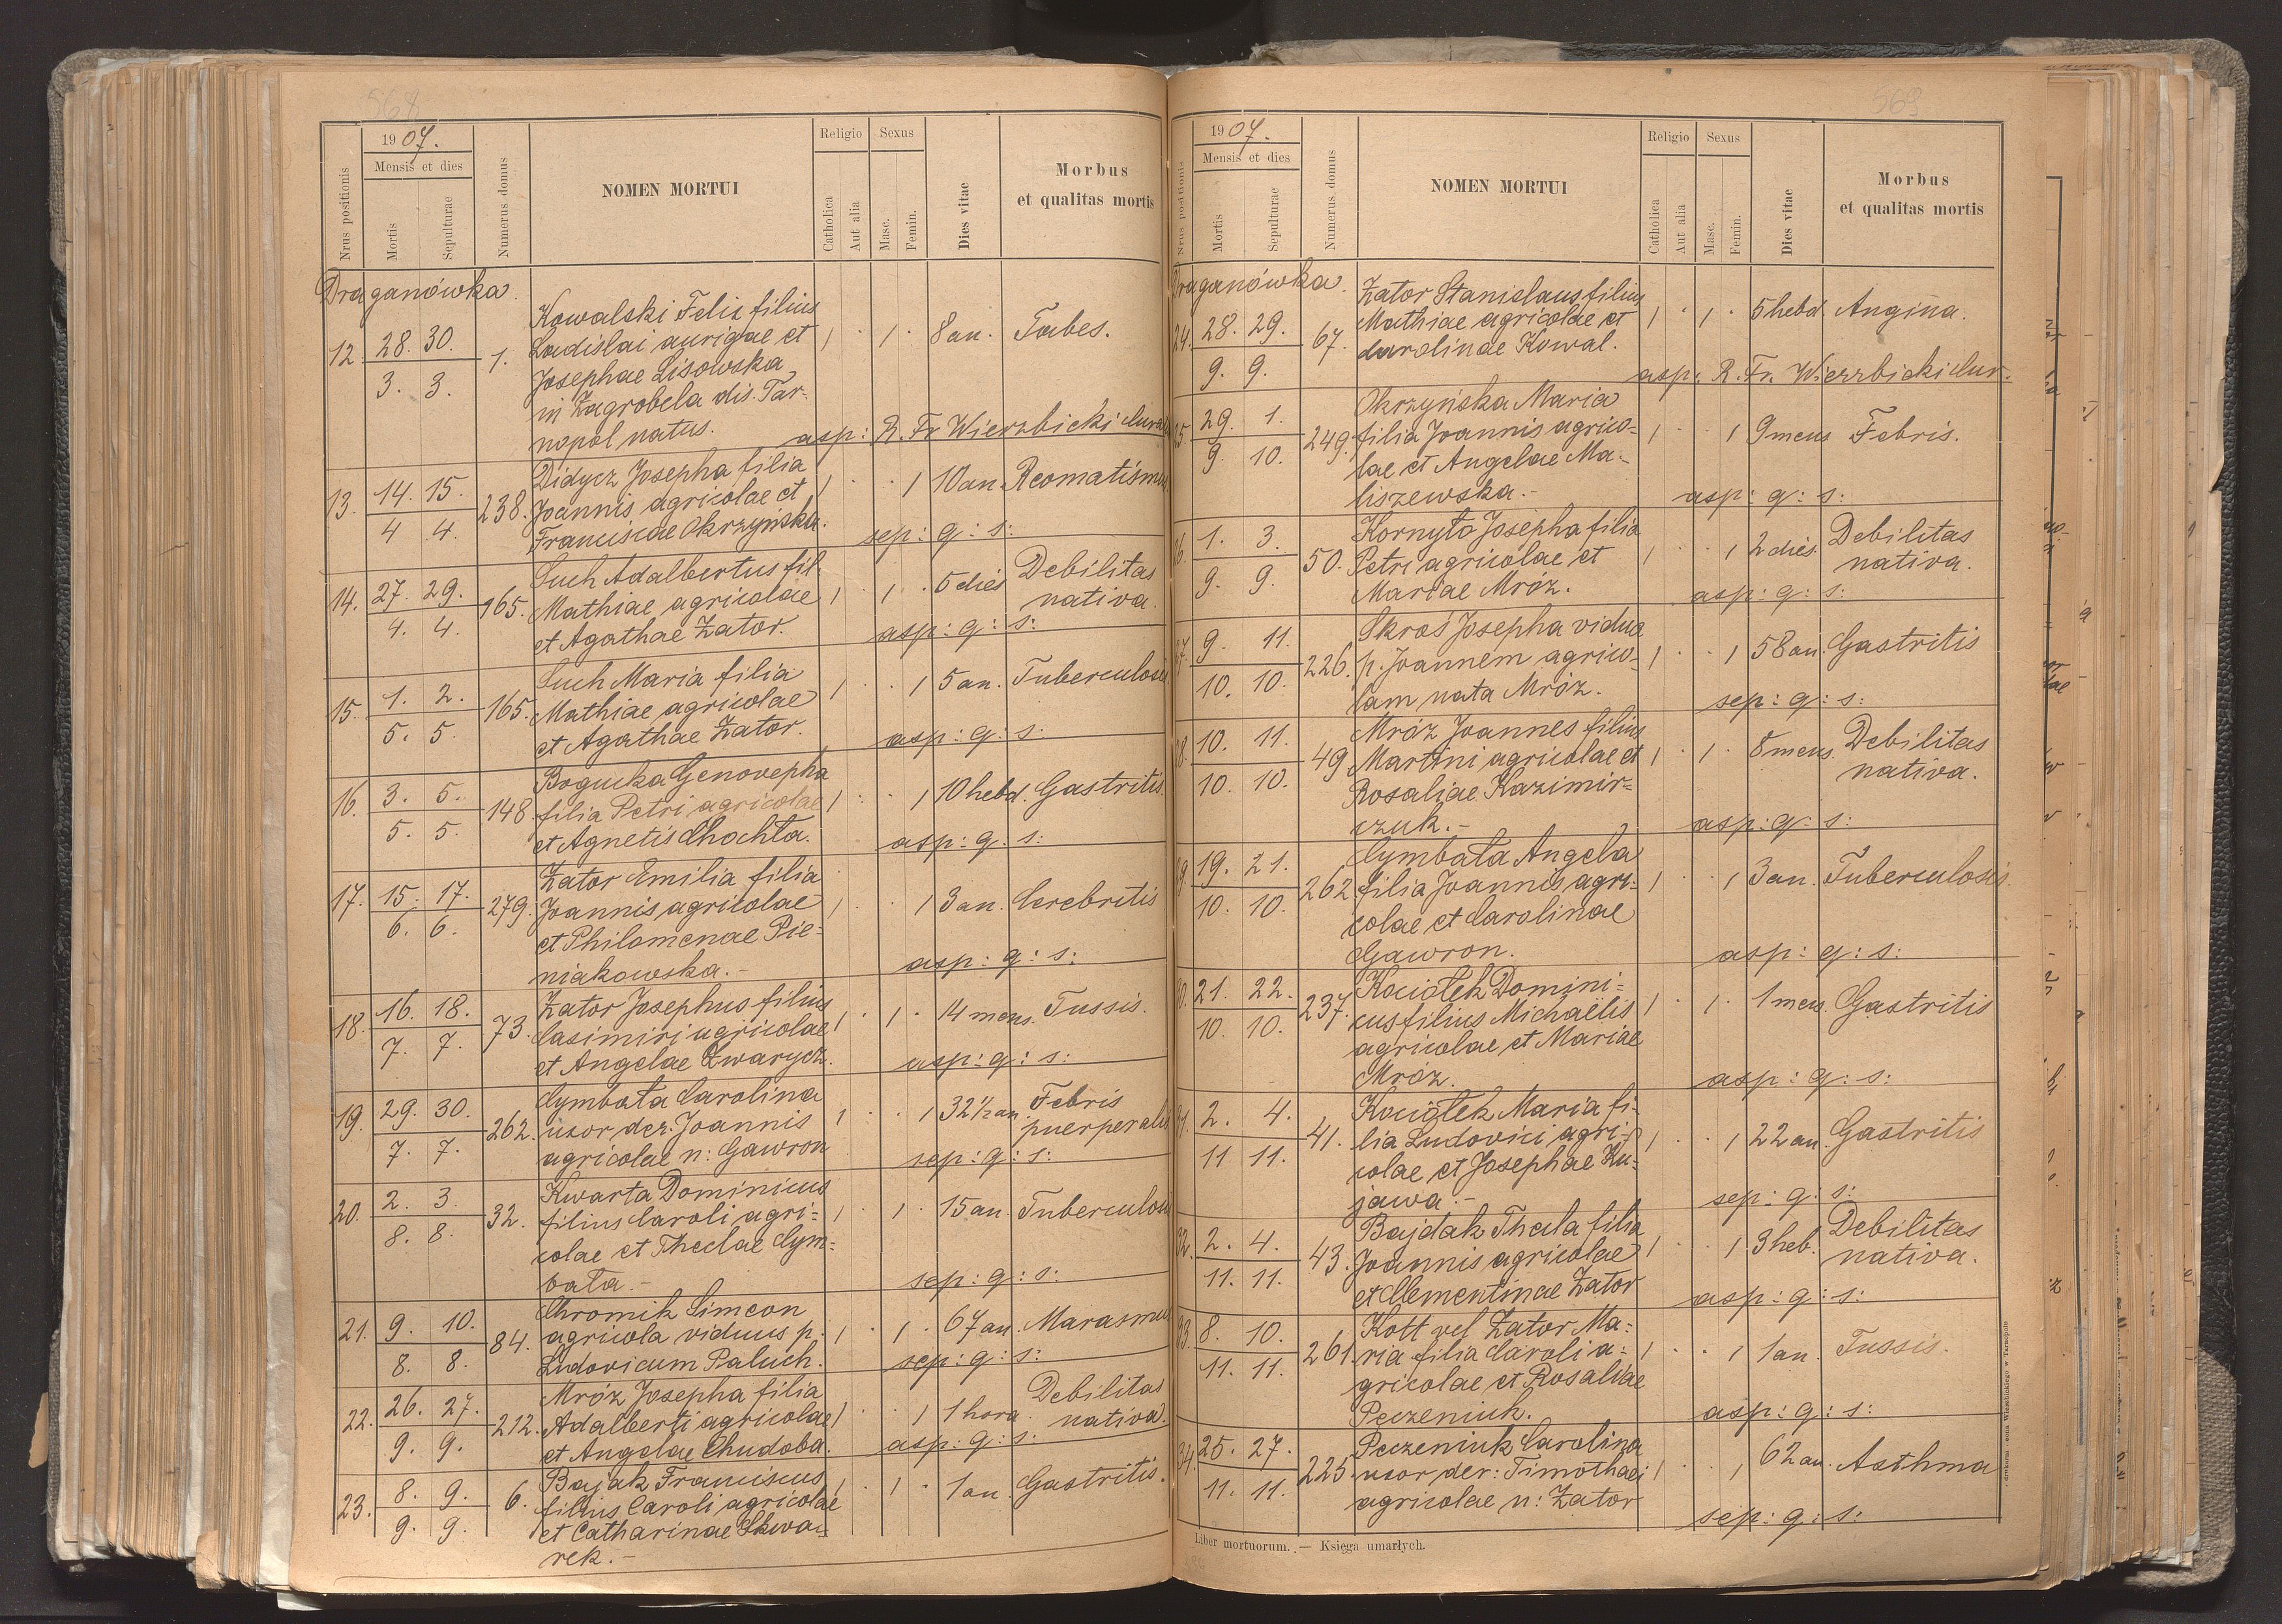 568
1907.
Mensis et dies
Nrus positionis
Mortis
Sepulturae
Numerus domus
NOMEN MORTUI
Religio
Catholica
Aut alia
Sexus
Masc.
Femin.
Dies vitae
Morbus
et qualitas mortis
Draganówka.
12. 28. 30. 3. 3. 1.
Kowalski Felix filius
Ladislai aurigae et
Josephae Lisowska
in Zagrobela dis. Tar-
nopol natus.
1 · 1 · 8 an. Tabes.
asp: R. Fr Wierzbicki
13. 14. 15. 4 4. 238.
Didycz Josepha filia
Joannis agricolae et
Franciscae Okrzyńska.
1 · · 1 10 an. Reomatismus
sep: q: s:
14. 27. 29. 4. 4. 165.
Such Adalbertus fil.
Mathiae agricolae
et Agathae Zator.
1 · 1 · 5 dies Debilitas
nativa.
asp: q: s:
15. 1. 2. 5. 5. 165.
Such Maria filia
Mathiae agricolae
et Agathae Zator.
1 · · 1 5 an. Tuberculosis
asp: q: s:
16. 3. 5. 5. 5. 148.
Bogucka Genovepha
filia Petri agricolae
et Agnetis Chochta.
1 · · 1 10 hebd. Gastritis
asp: q: s:
17. 15. 17. 6. 6. 279.
Zator Emilia filia
Joannis agricolae
et Philomenae Pie=
niakowska.-
1 · · 1 3 an. Cerebritis
asp: q: s:
18. 16. 18. 7. 7. 73.
Zator Josephus filius
Casimiri agricolae
et Angelae Zwarycz.
1 · 1 · 14 mens. Tussis.
asp: q: s:
19. 29. 30. 7. 7. 262.
Cymbata Carolina
uxor der. Joannis
agricolae n: Gawron
1 · · 1 32 1/2 an. Febris
puerperalis
sep: q: s:
20. 2. 3. 8. 8. 32.
Kwarta Dominicus
filius Caroli agri=
colae et Theclae Cym=
bata.-
1 · 1 · 15 an. Tuberculosis
sep: q: s:
21. 9. 10. 8. 8. 84.
Chromik Simeon
agricola viduus p.
Ludovicam Paluch.
1 · 1 · 67 an. Marasmus
sep: q: s:
22. 26. 27. 9. 9. 212.
Mróz Josepha filia
Adalberti agricolae
et Angelae Chudoba.
1 · · 1 1 hora. Debilitas
nativa.
asp: q: s:
23. 8. 9. 9. 9. 6.
Bajak Franciscus
filius Caroli agricolae
et Catharinae Skwa=
rek.-
1 · 1 · 1 an. Gastritis.
569
1907.
Mensis et dies
Nrus positionis
Mortis
Sepulturae
Numerus domus
NOMEN MORTUI
Religio
Catholica
Aut alia
Sexus
Masc.
Femin.
Dies vitae
Morbus
et qualitas mortis
Draganówka.
24. 28. 29. 9. 9. 67.
Zator Stanislaus filius
Mathiae agricolae et
Carolinae Kowal.
1 · 1 · 5 hebd. Angina.
asp: R. Fr. Wierzbicki Cur.
25. 29. 1. 9. 10. 249.
Okrzyńska Maria
filia Joannis agrico=
lae et Angelae Ma-
liszewska.-
1 · · 1 9 mens Febris.
asp: q: s:
26. 1. 3. 9. 9. 50.
Kornyto Josepha filia
Petri agricolae et
Mariae Mróz.
1 · · 1 2 dies. Debilitas
nativa.
asp: q: s:
27. 9. 11. 10. 10. 226.
Skroś Josepha vidua
p. Joannem agrico=
lam nata Mróz.
1 · · 1 58 an. Gastritis
sep: q: s:
28. 10. 11. 10. 10. 49
Mróz Joannes filius
Martini agricolae et
Rosaliae Kazimir=
czuk.-
1 · 1 · 8 mens. Debilitas
nativa.
asp: q: s:
29. 19. 21. 10. 10. 262
Cymbata Angela
filia Joannis agri=
colae et Carolinae
Gawron.
1 · · 1 3 an. Tuberculosis.
asp: q: s:
30. 21. 22. 10. 10. 237.
Kociołek Domini=
cus filius Michaëlis
agricolae et Mariae
Mróz.
1 · 1 · 1 mens. Gastritis
asp: q: s:
31. 2. 4. 11 11. 41.
Kociołek Maria fi-
lia Ludovici agri-
colae et Josephae Ku=
jawa.-
1 · · 1 22 an. Gastritis
sep: q: s:
32. 2. 4. 11. 11. 43.
Bajdak Thecla filia
Joannis agricolae
et Clementinae Zator
1 · · 1 3 heb. Debilitas
nativa.
asp: q: s:
33. 8. 10. 11. 11. 261.
Kott vel Zator Ma=
ria filia Caroli a=
gricolae et Rosaliae
Peczeniuk.
1 · · 1 1 an. Tussis.
asp: q: s:
34. 25. 27. 11. 11. 225.
Peczeniuk Carolina
uxor der: Timothaei
agricolae n: Zator
1 · · 1 62 an. Asthma
sep: q: s:
Liber mortuorum. — Księga umarłych.